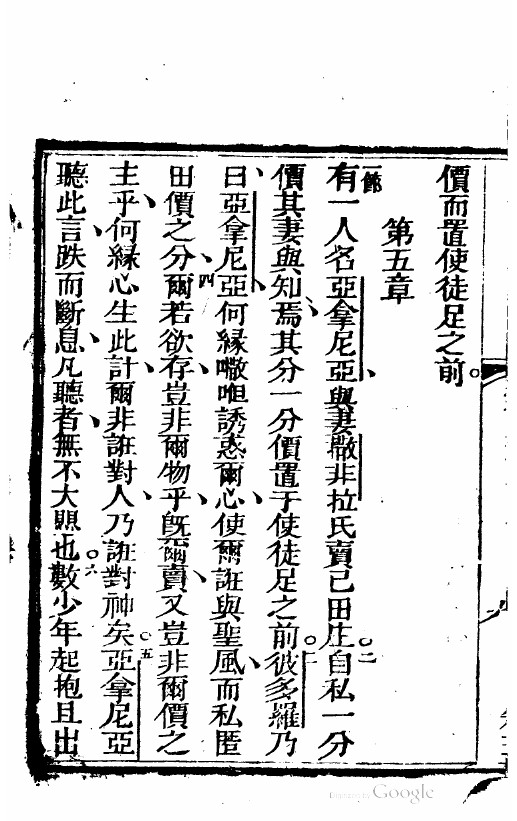 價而置使徒足之前。
第五章
一節有一人名亞拿尼亞、與妻撒非拉氏賣己田庄。二自私一分
價、其妻與知焉、其分一分價、置于使徒足之前。三彼多羅乃
曰、亞拿尼亞、四何緣嗽咀誘惑爾心、使爾誑與聖風、而私匿
田價之分、爾若欲存、豈非爾物乎、旣爾賣、又豈非爾價之
主乎、何緣心生此計、爾非誑對人、乃誑對神矣。五亞拿尼亞
聽此言、跌而斷息、凡聽者、無不大懼也。六數少年起抱且出
Google